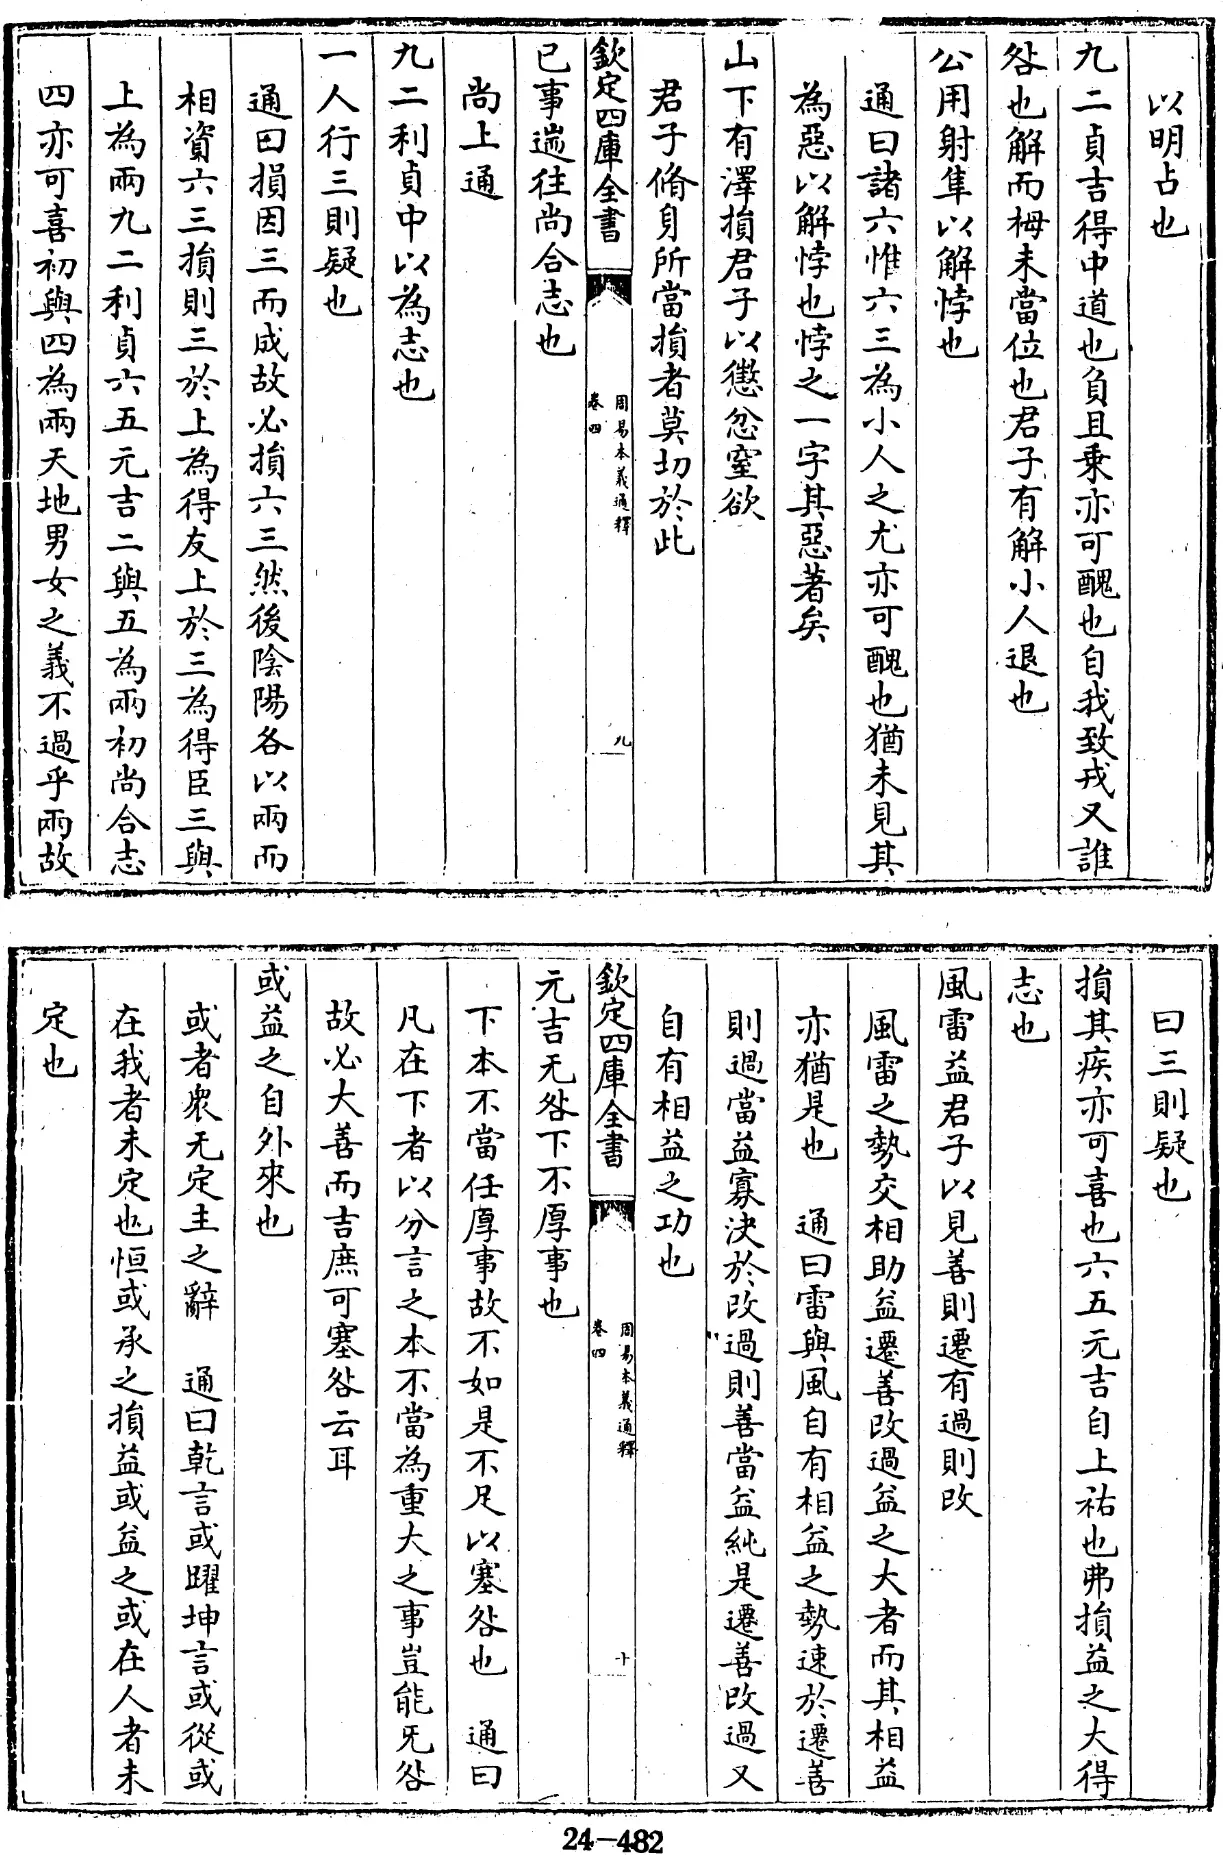 以明占也
九二貞吉得中道也負且乗亦可醜也自我致戎又誰
咎也解而拇未當位也君子有解小人退也
公用射隼以解悖也
通曰諸六惟六三為小人之尤亦可醜也猶未見其
為惡以解悖也悖之一字其惡著矣
山下有澤損君子以懲忿窒欲
君子脩身所當損者莫切於此
欽定四庫全書
周易本義通釋
卷四
九
已事遄往尚合志也
尚上通
九二利貞中以為志也
一人行三則疑也
通曰損因三而成故必損六三然後陰陽各以兩而
相資六三損則三於上為得友上於三為得臣三與
上為兩九二利貞六五元吉二與五為兩初尚合志
四亦可喜初與四為兩天地男女之義不過乎兩故
曰三則疑也
損其疾亦可喜也六五元吉自上祐也弗損益之大得
志也
風雷益君子以見善則遷有過則改
風雷之勢交相助益遷善改過益之大者而其相益
亦猶是也　通曰雷與風自有相益之勢速於遷善
則過當益寡決於改過則善當益純是遷善改過又
自有相益之功也
欽定四庫全書
周易本義通釋
卷四
十
元吉无咎下不厚事也
下本不當任厚事故不如是不足以塞咎也　通曰
凡在下者以分言之本不當為重大之事豈能无咎
故必大善而吉庶可塞咎云耳
或益之自外來也
或者衆无定主之辭　通曰乾言或躍坤言或從或
在我者未定也恒或承之損益或益之或在人者未
定也
24-482